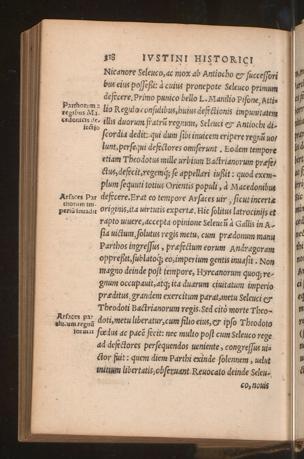 318 IVSTINI HISTORICI
Nicanore Seleuco, ac mox ab Antiocho & successori
bus eius possessi: à cuius pronepote Seleuco primum
defecere, Primo punico bello L. Manlio Pisone, Atti
lio Regulo consulibus, huius defectionis impunitatem
illis duorum fratrũ regnum, Seleuci & Antiochi di
scordia dedit: qui dum sibi inuicem eripere regnũ uo
lunt, persequi defectores omiserunt. Eodem tempore
etiam Theodotus mille urbium Bactrianorum præfe
ctus, defecit, regemq́; se appellari iussit: quod exem-
plum sequuti totius Orientis populi, à Macedonibus
defecere. Erat eo tempore Arsaces uir, sicut incertæ
originis, ita uirtutis expertæ. Hic solitus latrocinijs et
rapto uiuere, accepta opinione Seleucũ à Gallis in A-
sia uictum, solutus regis metu, cum prædonum manu
Parthos ingressus, præfectum eorum Andragoram
oppressit, sublatoq́; eo, imperium gentis inuasit. Non
magno deinde post tempore, Hyrcanorum quoq; re-
gnum occupauit, atq; ita duarum ciuitatum imperio
præditus, grandem exercitum parat, metu Seleuci &
Theodoti Bactrianorum regis. Sed citò morte Theo-
doti, metu liberatur, cum filio eius, & ipso Theodoto
fœdus ac pacẽ fecit: nec multo post cum Seleuco rege
ad defectores persequendos ueniente, congressus ui-
ctor fuit: quem diem Parthi exinde solennem, uelut
initium libertatis, obseruant Reuocato deinde Seleu-
co, nouis
Parthorum a
regibus Ma-
cedonicis de-
fectio
Arsaces Par
thorum im-
periũ inuadit
Arsaces par
thicum regnũ
format